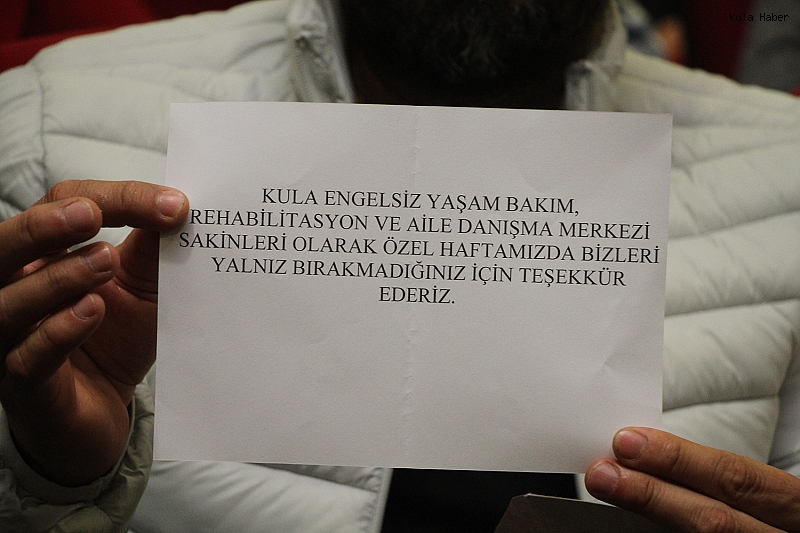 Kula Haber
KULA ENGELSİZ YAŞAM BAKIM,
REHABİLİTASYON VE AİLE DANIŞMA MERKEZİ
SAKİNLERİ OLARAK ÖZEL HAFTAMIZDA BİZLERİ
YALNIZ BIRAKMADIĞINIZ İÇİN TEŞEKKÜR
EDERİZ.